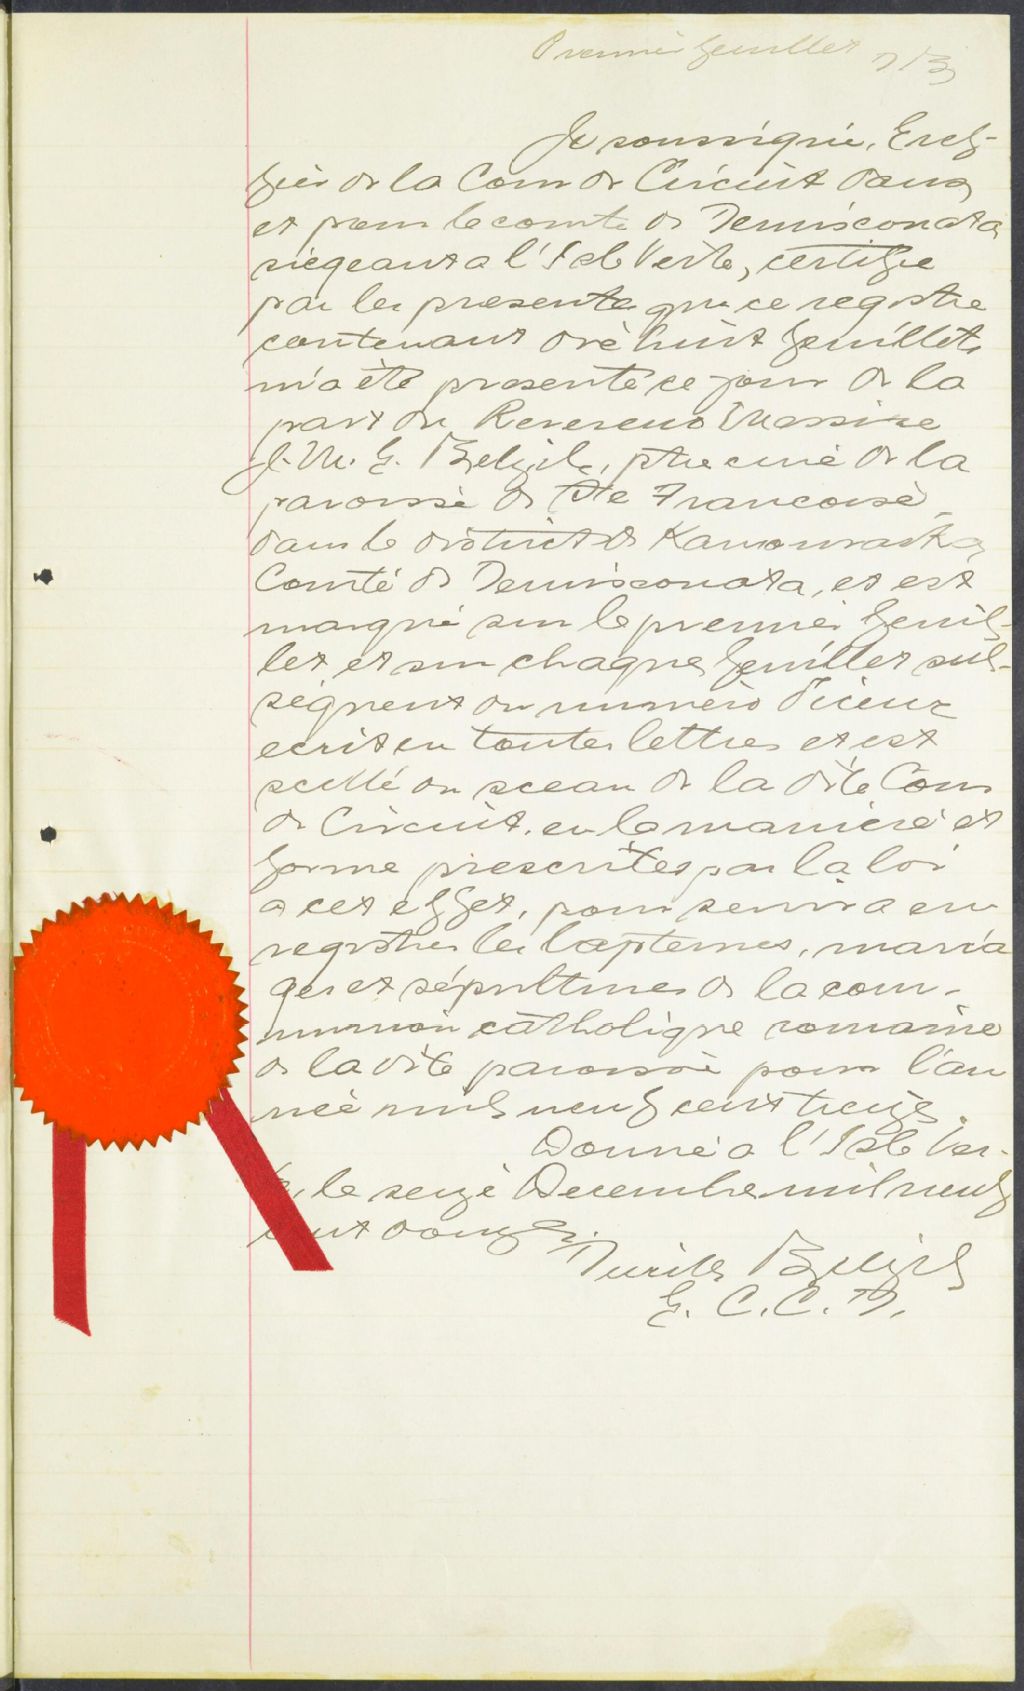 Premier feuillet
Je soussigné, Gref-
fier de la Cour de Circuit dans
et pour le comté de Temisconata
siegeant a l'Isle Verte, certifie
par les presentes que ce registre
contenant dix huit feuillets
m'a été presenté ce jour de la
part du Reverend Messire
J. M. G. Belzile, ptre curé de la
paroisse de Ste Francoise
dans le district de Kamouraska
Comté de Temisconata, et est
marqué sur le premier feuil-
let et sur chaque feuillet sub-
sequent du numéro d'iceux
ecrit en toutes lettres et est
scellé du sceau de la dite Cour
de Circuit, en la maniere et
forme prescrites par la loi
a cet effet, pour servir a en-
registrer les baptemes, maria
ges et sépultures de la com-
munion catholique romaine
de la dite paroisse pour l'an
née mil neuf cent treize.
Donné a l'Isle Ver-
te, le seize Decembre mil neuf
cent douze.
Belzile
G. C. C. T.